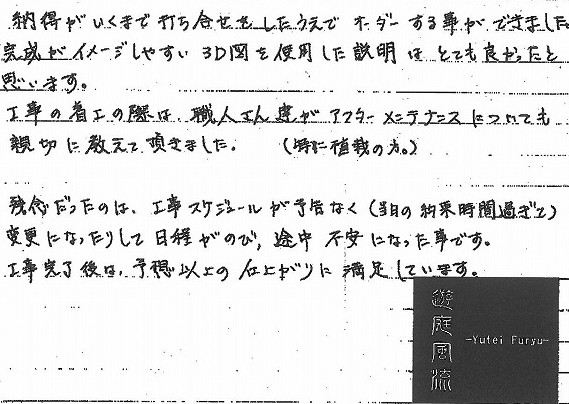 納得がいくまで打ち合せをしたうえでオーダーする事ができました。
完成がイメージしやすい3D図を使用した説明はとても良かったと
思います。
工事の着工の際は、職人さん達がアフターメンテナンスについても
親切に教えて頂きました。(特に植栽の方。)
残念だったのは、工事スケジュールが予告なく(当日の約束時間過ぎて)
変更になったりして日程がのび、途中不安になった事です。
工事完了後は、予想以上の仕上がりに満足しています。
遊庭風流
-Yutei Furyu-